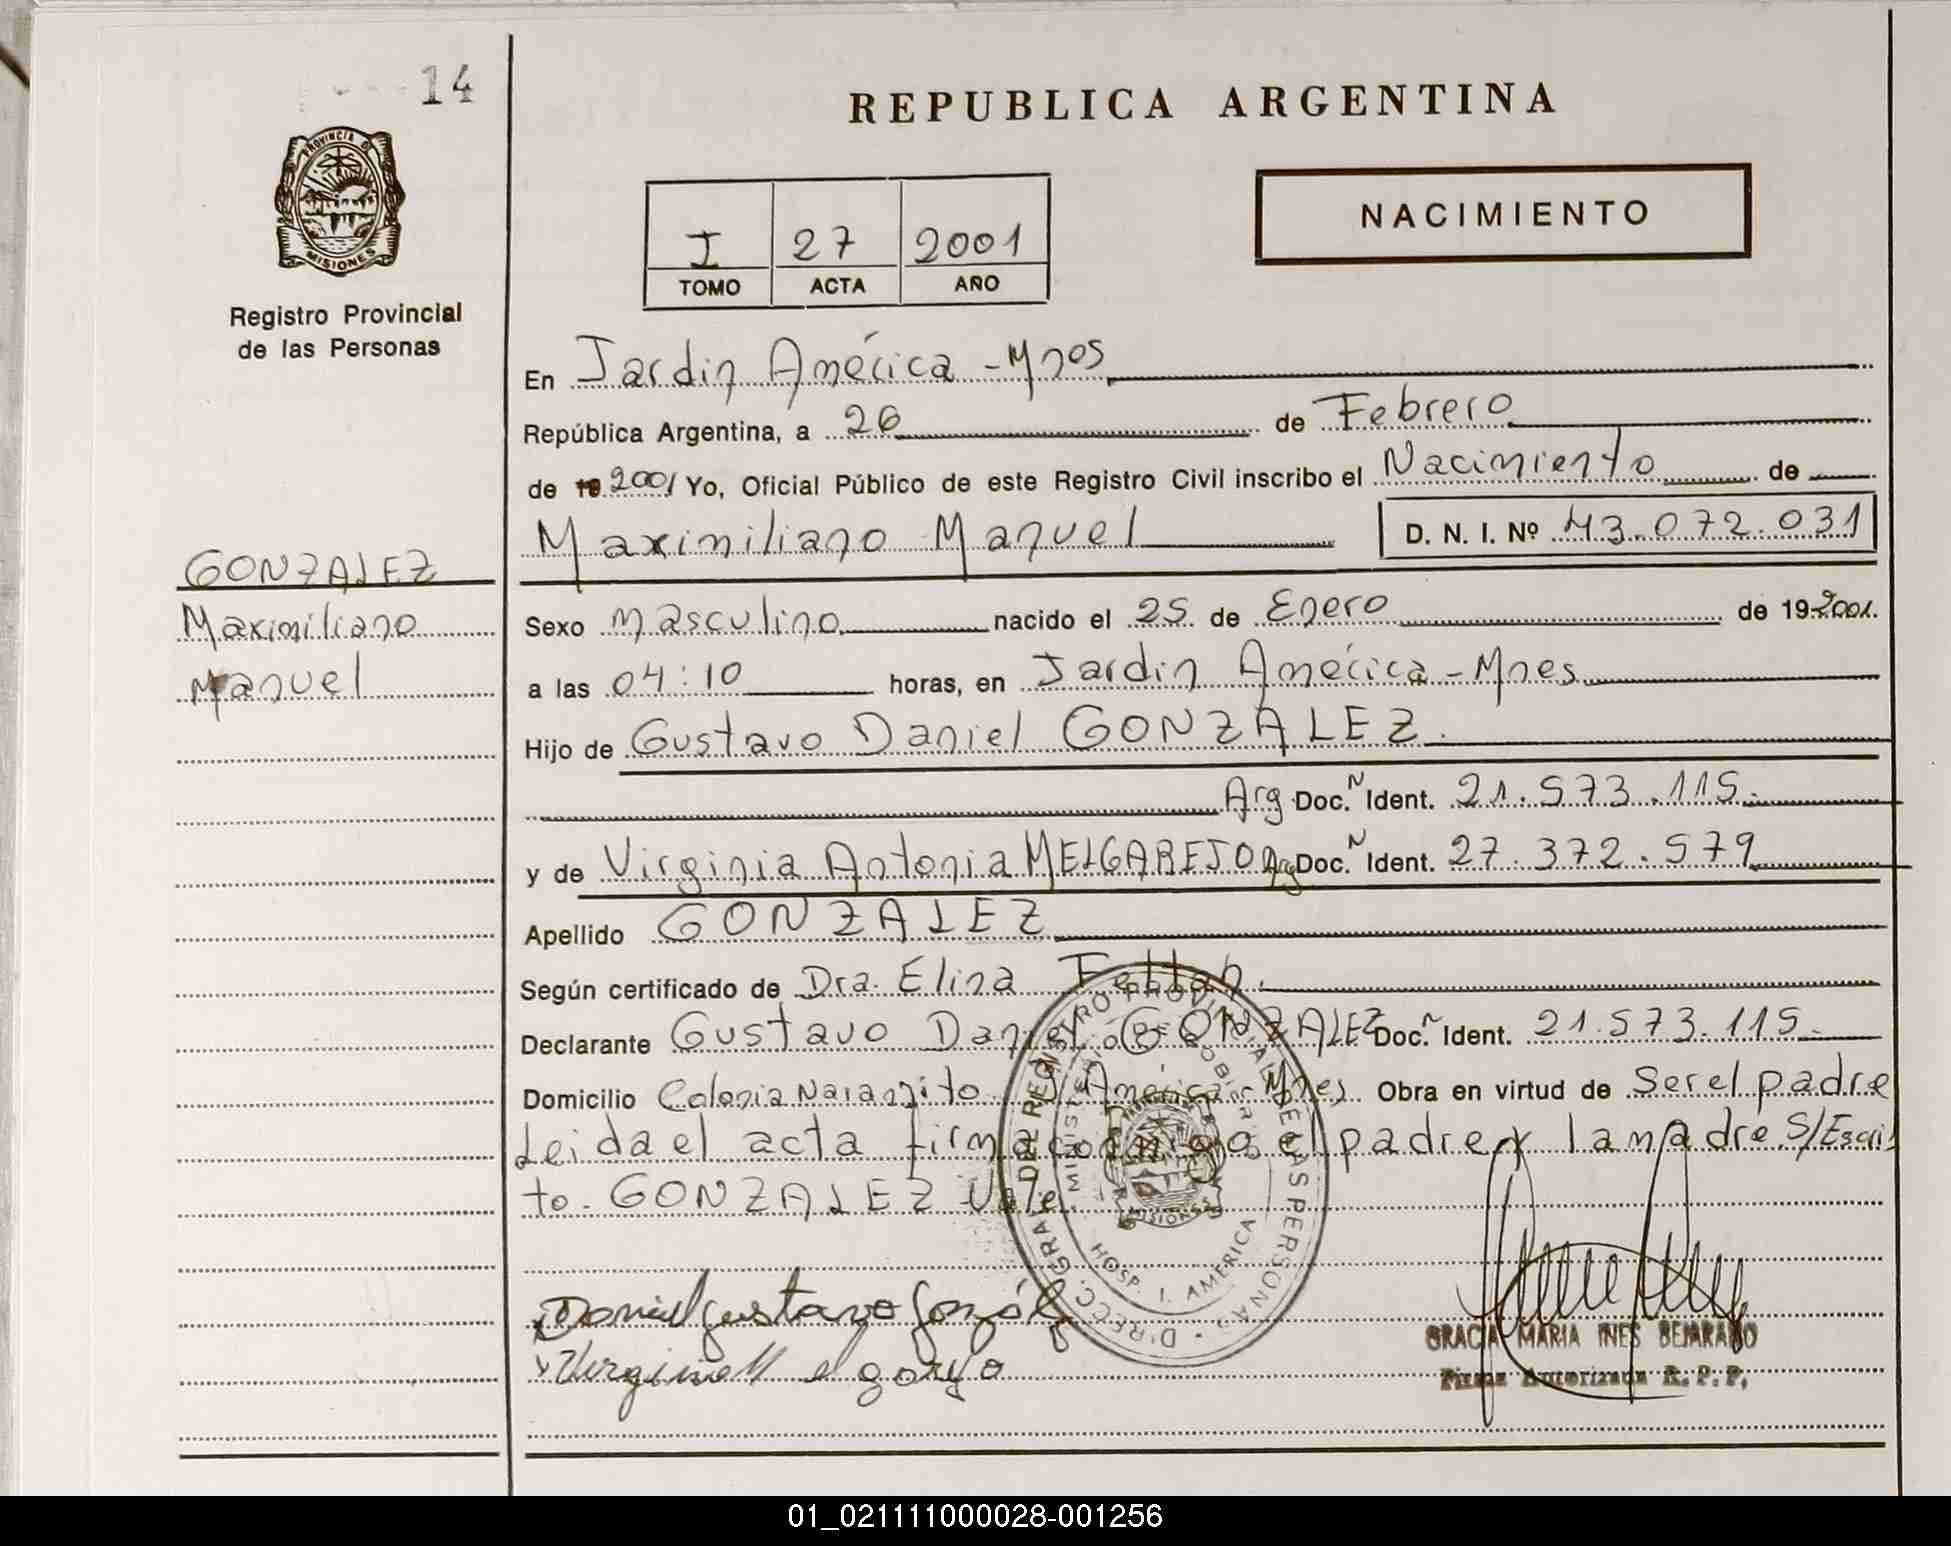 14
REPUBLICA ARGENTINA
PROVINCIA DE
MISIONES
Registro Provincial
de las Personas
I 27 2001
TOMO ACTA AÑO
NACIMIENTO
En Jardin América - Mnes
República Argentina, a 26 de Febrero
de 19 2001 Yo, Oficial Público de este Registro Civil inscribo el Nacimiento de
Maximiliano Manuel D. N. I. Nº 43.072.031
GONZALEZ
Maximiliano
Manuel
Sexo masculino nacido el 25 de Enero de 19 2001.
a las 04:10 horas, en Jardin América - Mnes.
Hijo de Gustavo Daniel GONZALEZ.
Arg Doc. N Ident. 21.573.115.
y de Virginia Antonia MELGAREJO Arg Doc. N Ident. 27.372.579
Apellido GONZALEZ
Según certificado de Dra. Elina
Declarante Gustavo Daniel GONZALEZ Doc. N Ident. 21.573.115.
Domicilio Colonia Naranjito J. América - Mnes. Obra en virtud de Ser el padre
Leida el acta firma conmigo el padre y la madre S/Escri
to. GONZALEZ Vale.
DIRECC. GRAL. DEL REGISTRO PROVINCIAL DE LAS PERSONAS
MINISTERIO DE GOBIERNO
MISIONES
HOSP. J. AMERICA
Daniel Gustavo Gonzál
Virginia Melgarejo
GRACIA MARIA INES BEJARANO
Firma Autorizada R. P. P.
01_021111000028-001256